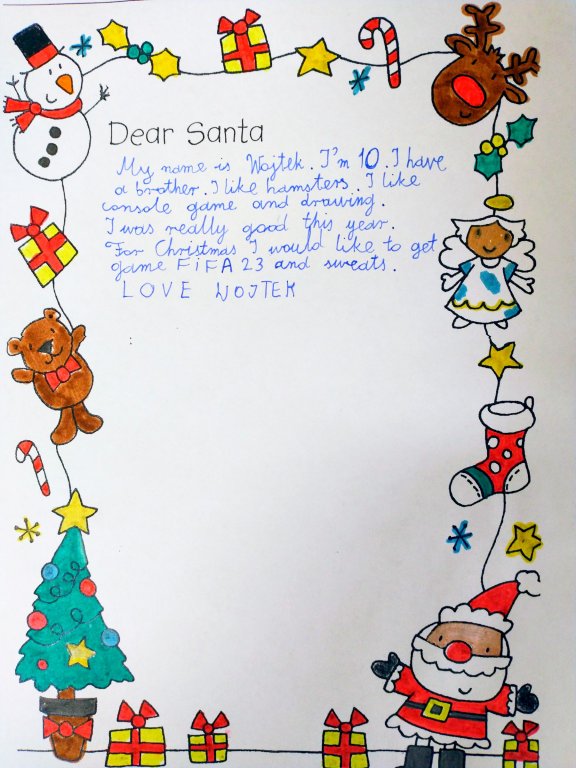 Dear Santa
My name is Wojtek. I'm 10. I have
a brother. I like hamsters. I like
console game and drawing.
I was really good this year.
For Christmas I would like to get
game FiFA 23 and sweats.
LOVE WOJTEK